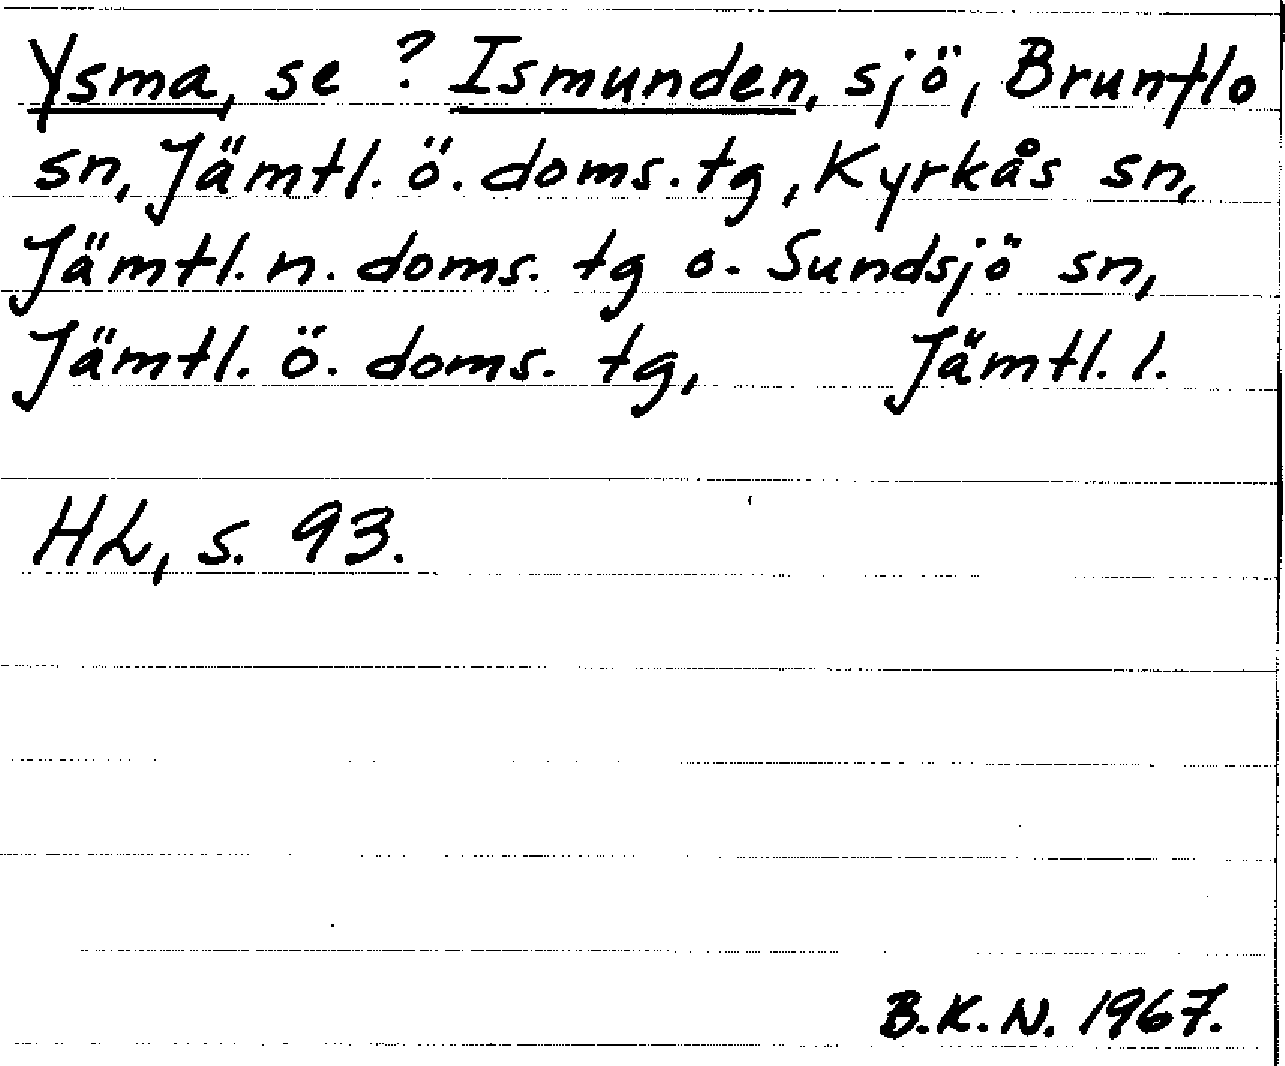 Ysma, se ? Ismunden, sjö, Brunflo
sn, Jämtl. ö. doms. tg, Kyrkås sn,
Jämtl. n. doms. tg o. Sundsjö sn,
Jämtl. ö. doms. tg, Jämtl. l.
HL, s. 93.
B.K.N. 1967.